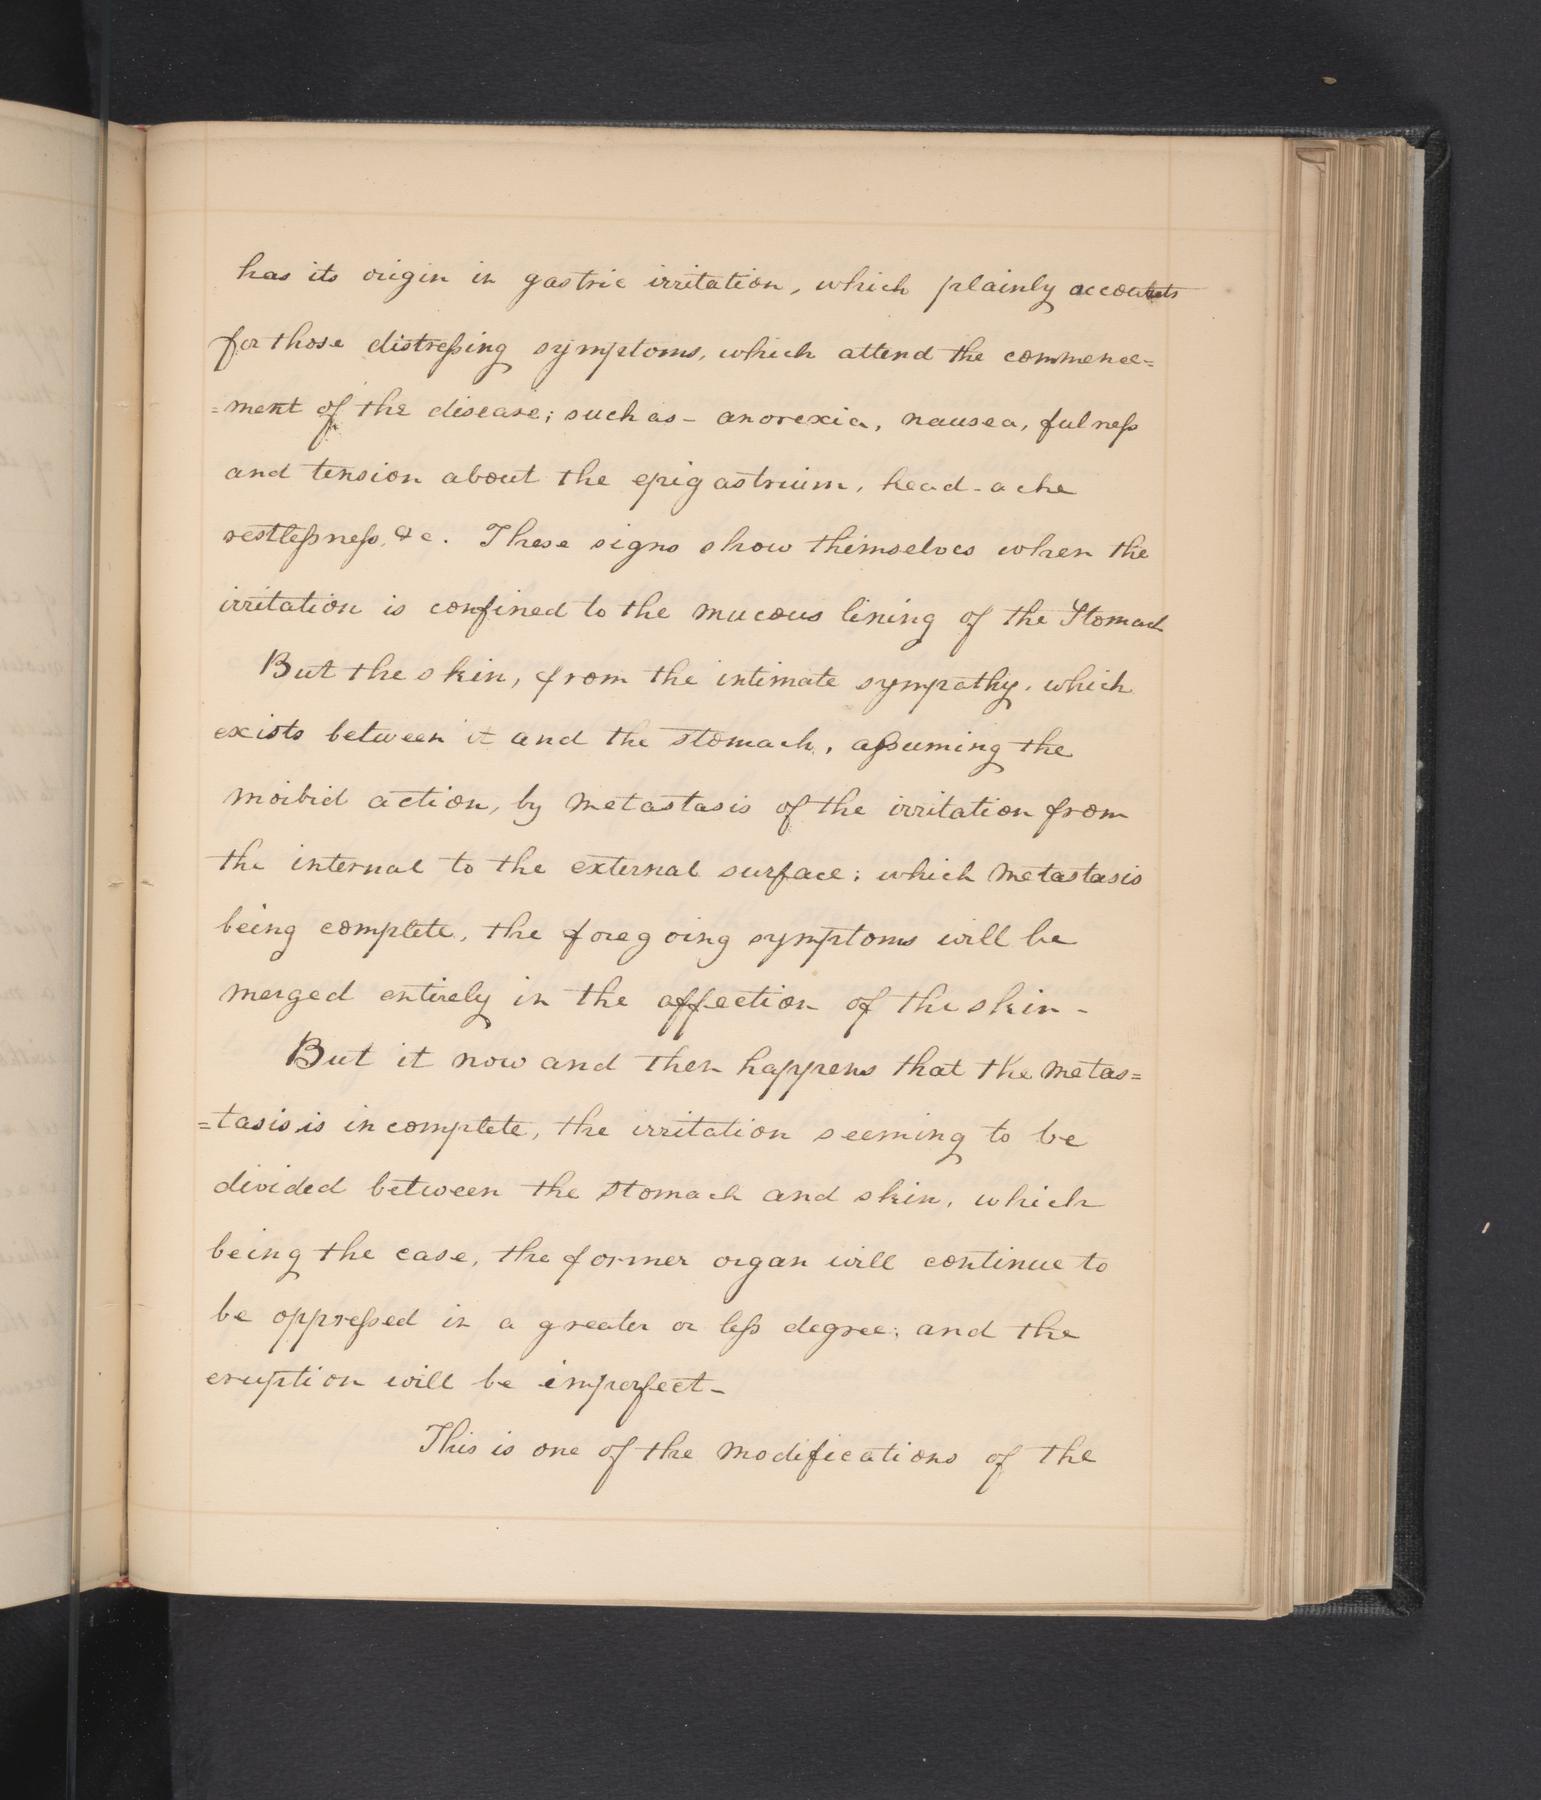 has its origin in gastric irritation, which plainly accounts
for those distreſsing symptoms, which attend the commence=
=ment of the disease; such as - anorexia, nausea, fulneſs
and tension about the epigastrium, head-ache
restleſsneſs, &c. These signs show themselves when the
irritation is confined to the mucous lining of the Stomach
But the skin, from the intimate sympathy, which
exists between it and the stomach, aſsuming the
morbid action, by metastasis of the irritation from
the internal to the external surface; which metastasis
being complete, the foregoing symptoms will be
merged entirely in the affection of the skin -
But it now and then happens that the metas=
=tasis is incomplete, the irritation seeming to be
divided between the stomach and skin, which
being the case, the former organ will continue to
be oppreſsed in a greater or leſs degree; and the
eruption will be imperfect -
This is one of the modifications of the